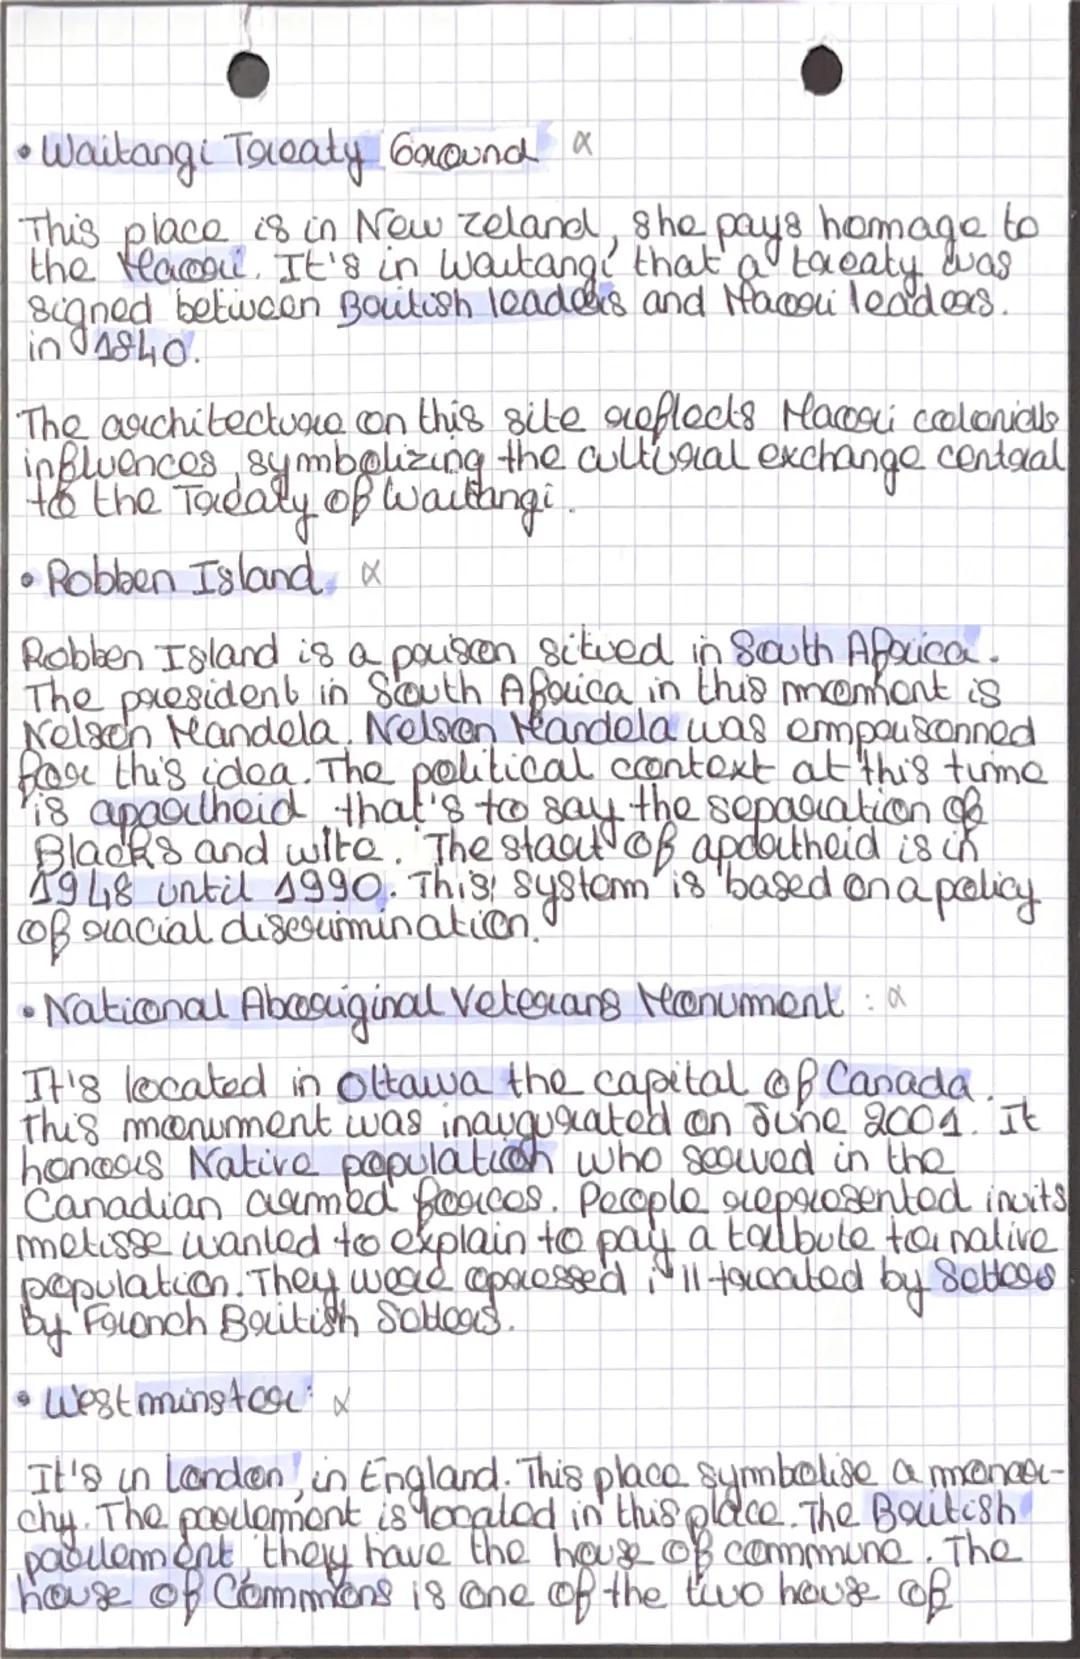 • Waitangi Treaty Ground α
This place is in New zeland, she pays homage to
the Maori. It's in Waitangi that a treaty was
signed between British leaders and Maori leaders.
in 1840.
The architecture on this site reflects Maori colonials
influences, symbolizing the cultural exchange central
to the Treaty of Waitangi.
• Robben Island α
Robben Island is a prison situed in South Africa.
The president in South Africa in this moment is
Nelson Mandela. Nelson Mandela was emprisonned
for this idea. The political context at this time
is apartheid that's to say the separation of
Blacks and wite. The start of apartheid is in
1948 until 1990. This system is based on a policy
of racial discrimination.
• National Aboriginal Veterans Monument : α
It's located in Ottawa the capital of Canada.
This monument was inaugurated on June 2001. It
honors Native population who served in the
Canadian armed forces. People represented inuits
metisse wanted to explain to pay a tribute to native
population. They were opressed ill treated by Setters
by French British Setters.
• Westminster: α
It's in London, in England. This place symbolise a monar-
chy. The parlement is located in this place. The British
parlement, they have the house of commune. The
house of Commons is one of the two house of